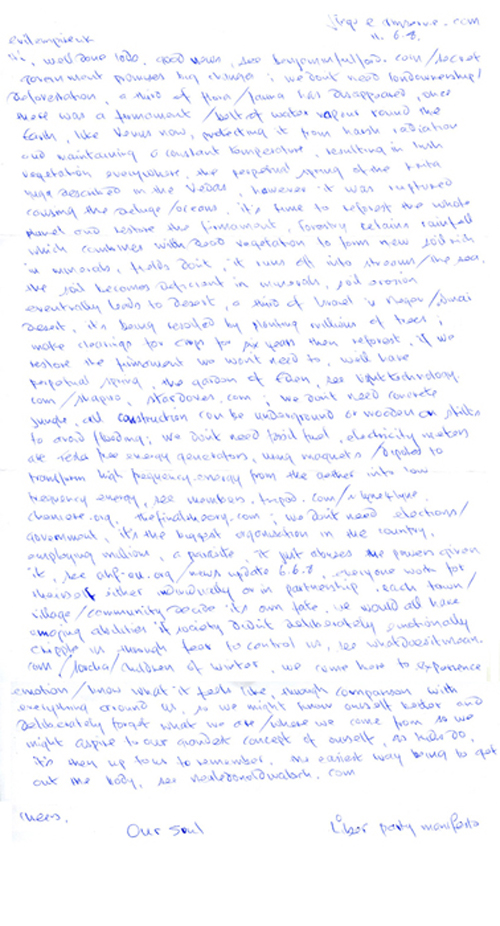 . com
11. 6.8.
well done lodo. good news, see benjaminfulford. com/secret
government promises big changes; we don't need landownership/
deforestation, a third of flora/fauna has disappeared, once
there was a firmament /belt of water vapour round the
Earth, like Venus now, protecting it from harsh radiation
and maintaining a constant temperature, resulting in lush
vegetation everywhere, the perpetual spring of the
yuga described in the Vedas, however it was ruptured
causing the deluge/oceans. it's time to reforest the whole
planet and restore the firmament, forestry retains rainfall
which combines with dead vegetation to form new soil rich
in minerals, fields don't, it runs off into streams/the sea.
the soil becomes deficient in minerals, soil erosion
eventually leads to desert, a third of Israel is Negev/Sinai
desert, it's being resolved by planting millions of trees;
make clearings for crops for six years then reforest. if we
restore the firmament we won't need to, we'll have
perpetual spring, the garden of Eden, see lighttechnology.
com/shapiro, stardoves. com; we don't need concrete
jungle, all construction can be underground or wooden on stilts
to avoid flooding; we don't need fossil fuel, electricity meters
are Tesla free energy generators, using magnets /dipoles to
transform high frequency energy from the aether into low
frequency energy, see members. tripod. com/
cheniere.org, thefinaltheory.com; we don't need elections/
government, it's the biggest organisation in the country,
employing millions, a parasite, it just abuses the powers given
it, see ahf-eu.org/news update 6.6.8, everyone work for
themself either individually or in partnership. each town/
village/community decide it's own fate. we would all have
amazing abilities if society didn't deliberately emotionally
cripple us through fear to control us, see whatdoesitmean.
com/sorcha/children of winter, we come here to experience
emotion/know what it feels like, through comparison with
everything around us, so we might know ourself better and
deliberately forget what we are /where we come from so we
might aspire to our grandest concept of ourself, as kids do.
it's then up to us to remember. the easiest way being to get
out the body, see nealedonaldwalsch. com
cheers.
Our Soul
Liber party manifesto